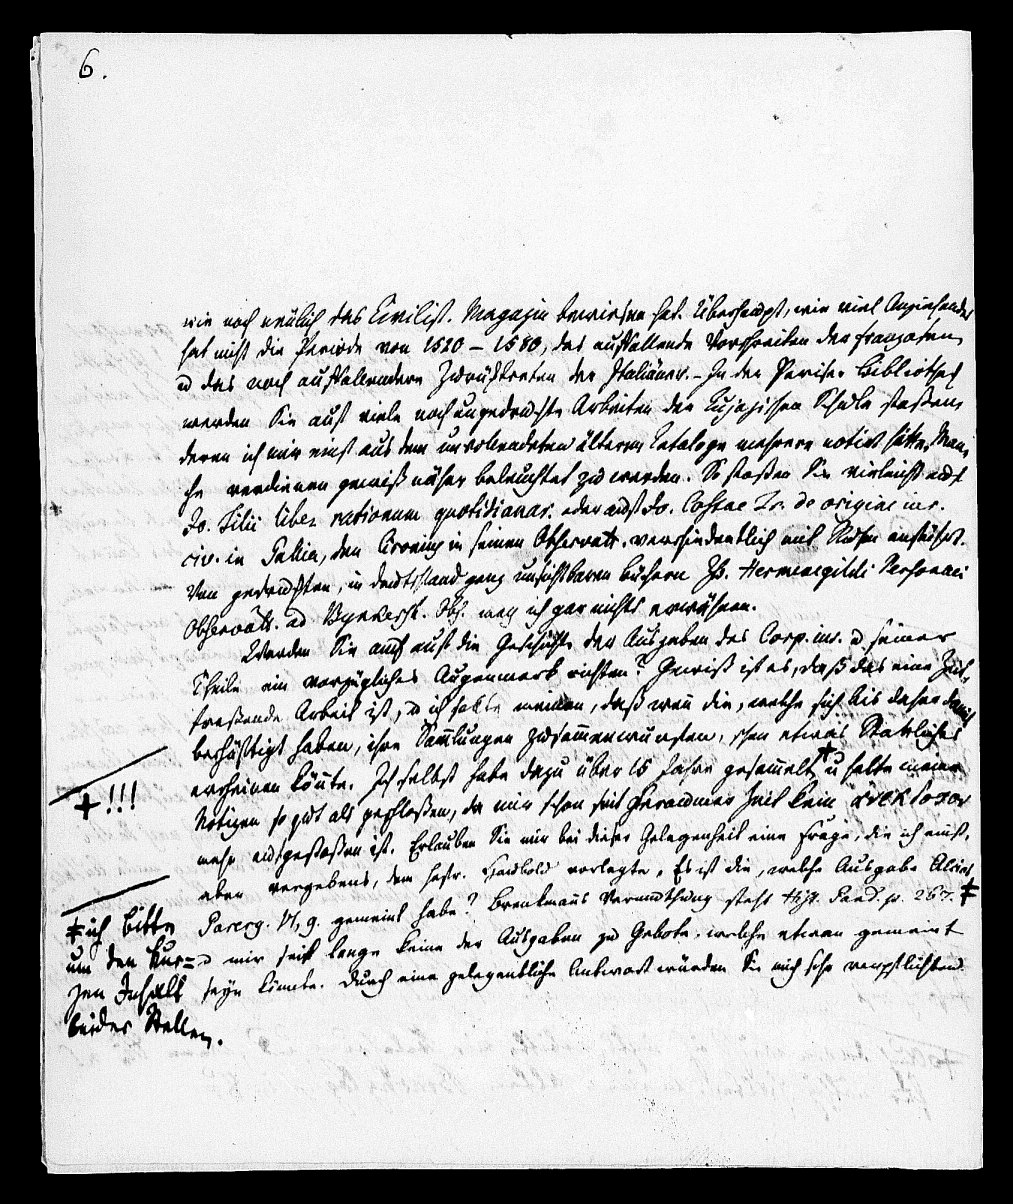 6.
wie noch neülich das Civilist. Magazin bewiesen hat. Überhaupt, wie viel Anziehendes
hat nicht die Periode von 1520 – 1580, das auffallende Vorschreiten der Franzosen,
u das noch auffallendere Zurücktreten der Italiäner. – In der Pariser Bibliothek
werden Sie auch viele noch ungedruckte Arbeiten der Cujazischen Schule stoßen,
deren ich mir einst aus dem unvollendeten ältern Cataloge mehrere notirt hatte. Man-
che verdienen gewiß näher beleuchtet zu werden. So stoßen Sie vielleicht auch
Jo. Tilii liber rationum quotidianar. oder auch Jo. Costae Tr. de origine iur.
civ. in Gallia, den in seinen Observatt. anführt.
Von gedruckten, in Deutschland ganz unsichtbaren Büchern Hermenegildi Personai
Observatt. ad Bynkersh. Obs. mag ich gar nichts erwähnen.
Werden Sie auch die Geschichte der Ausgaben des Corp. iur. u seiner
Theile ein vorzügliches Augenmerk richten? Gewiß ist es, daß das eine Zeit-
freßende Arbeit ist, u ich sollte meinen, daß wenn die, welche sich bis daher damit
beschäftigt haben, ihre Sammlungen zusammenwürfen, schon etwas Stattliches
erscheinen könnte. Ich selbst habe dazu über 15 Jahre gesammelt u halte meine
Notizen so gut als geschloßen, da mir schon seit geraumer Zeit kein
mehr aufgestoßen ist. Erlauben Sie mir bei dieser Gelegenheit eine Frage, die ich einst,
aber vergebens, dem sel. vorlegte. Es ist die, welche Ausgabe Alciat
Parerg. VI, 9. gemeint habe? Brenkmans Vermuthung steht Hist. Pand. p. 267. ‡
u mir seit lange keine der Ausgaben zu Gebote, welche etwan gemeint
seyn könnte. Durch eine gelegentliche Antwort würden Sie mich sehr verpflichten
+ !!!
‡ ich bitte
um den kur=
zen Inhalt
beider Stellen.